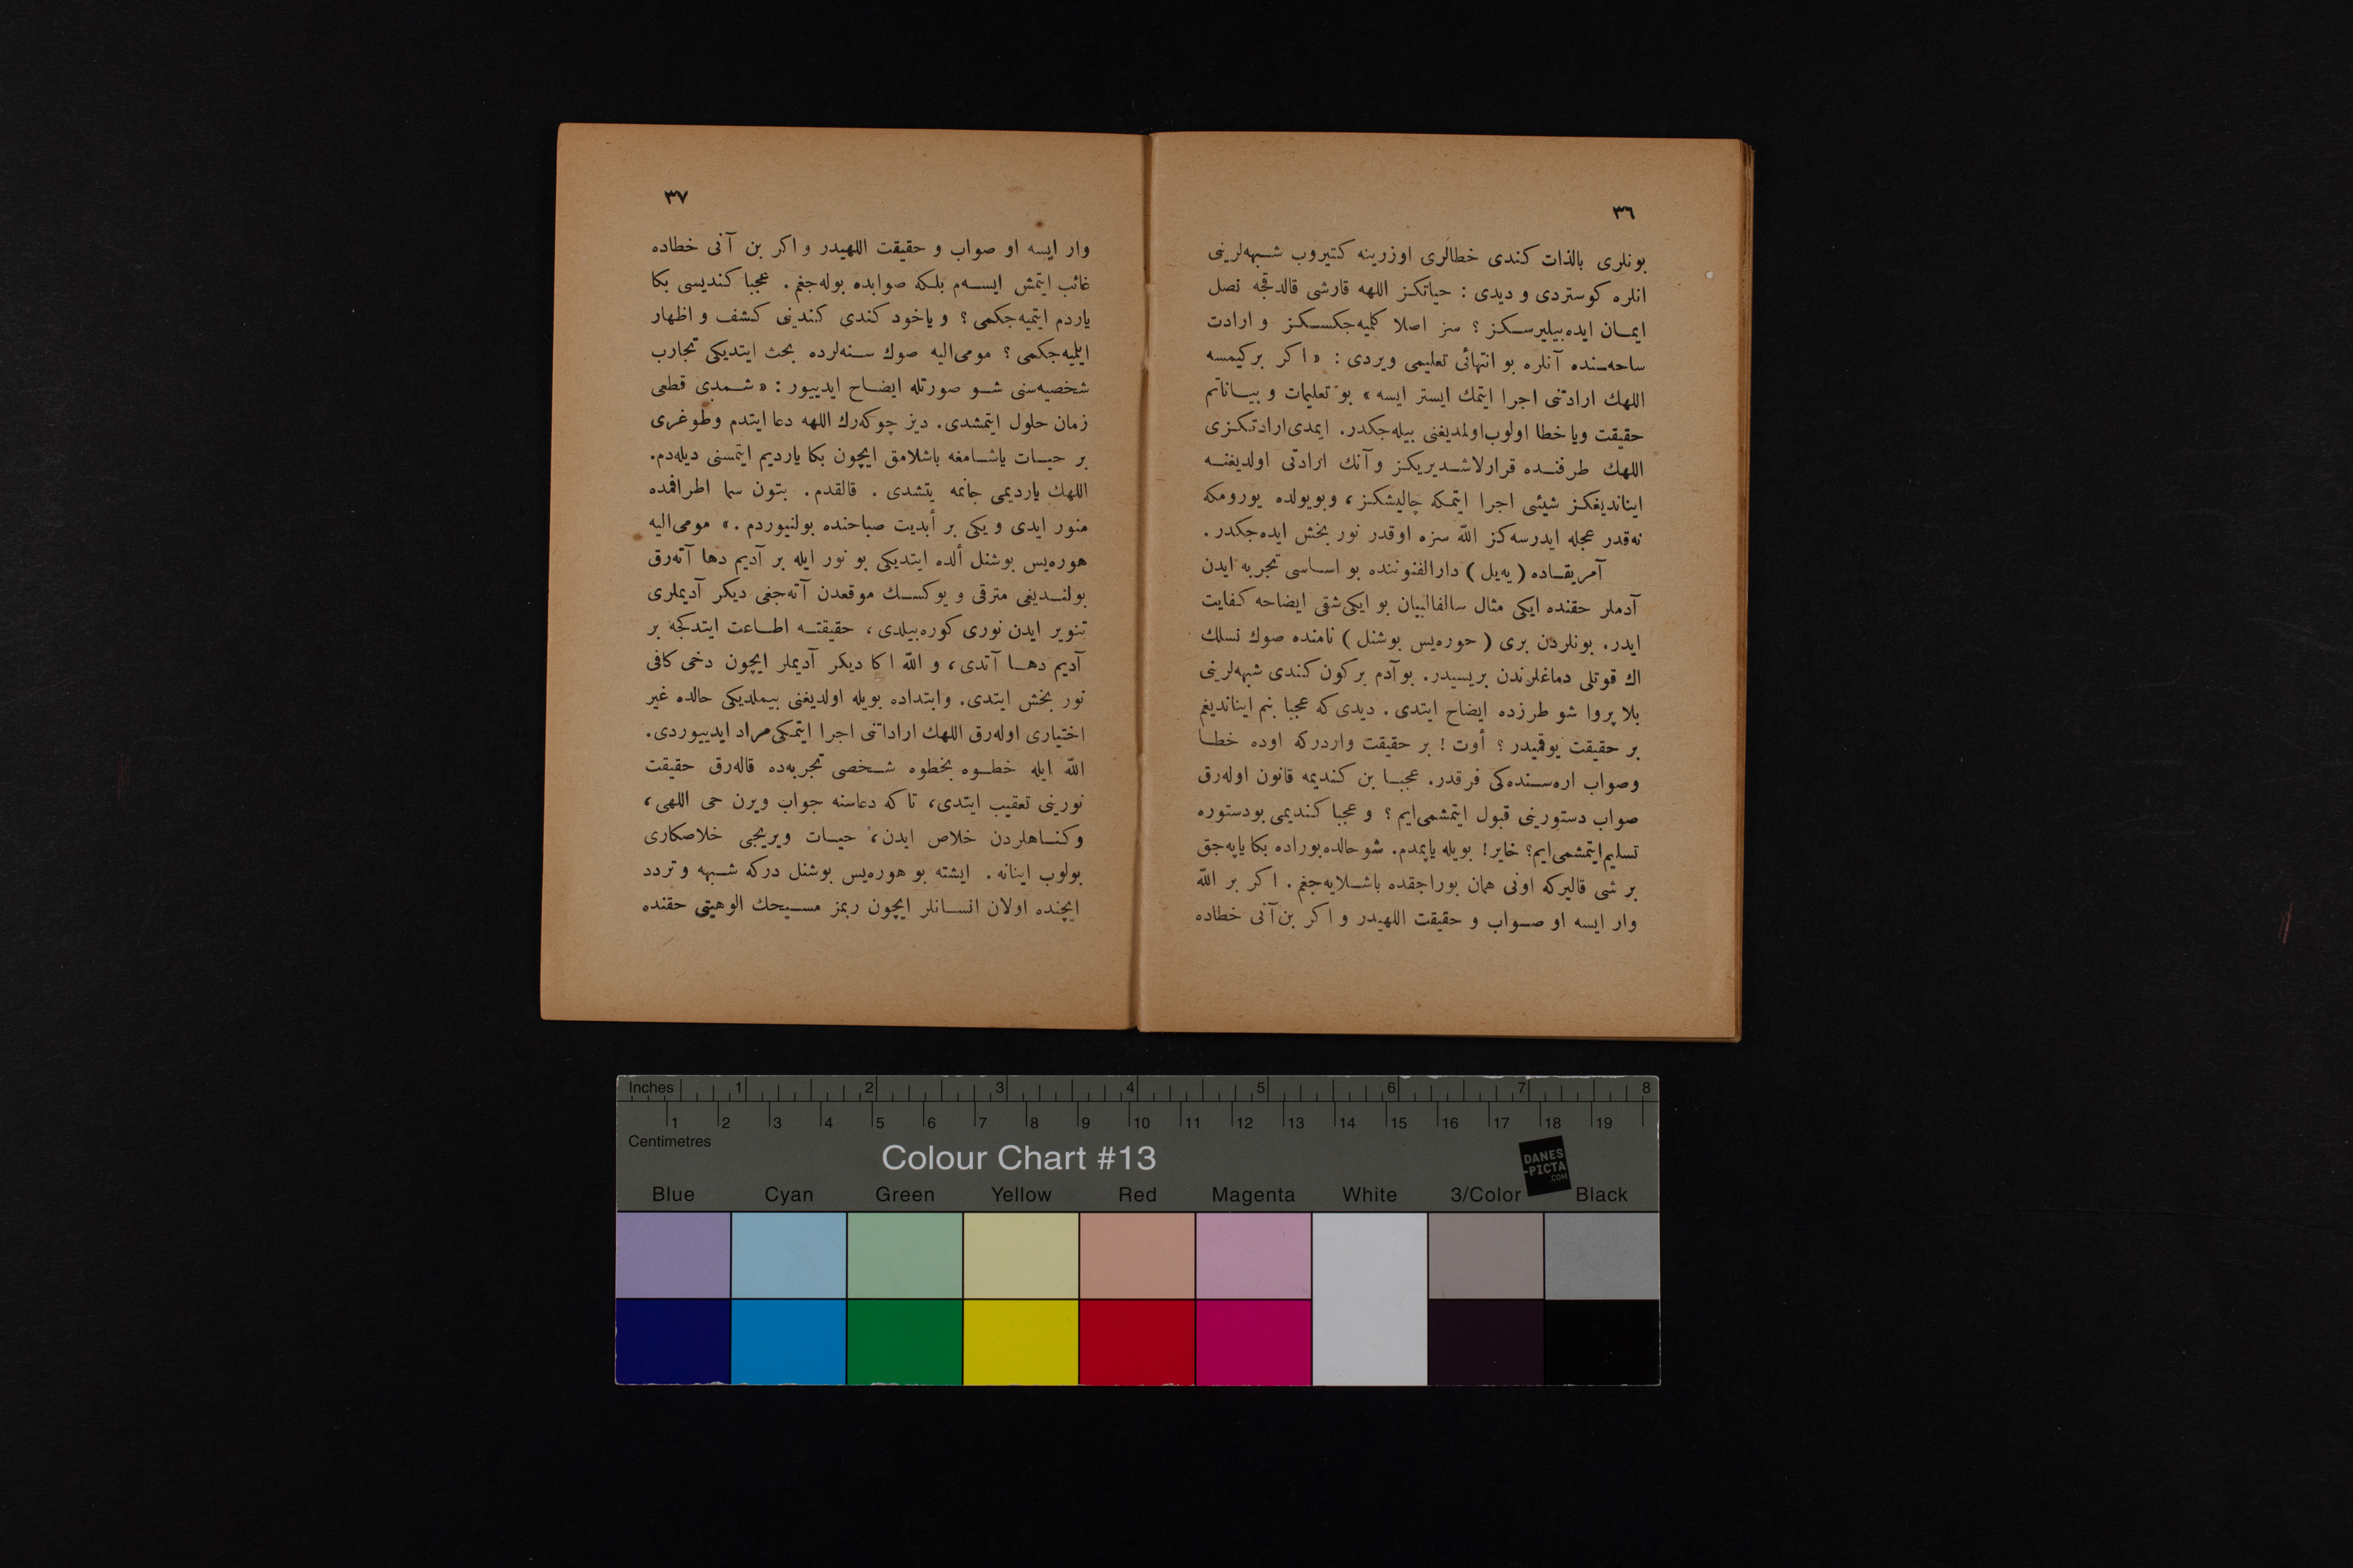 ٣٦
بونلری بالذات کندی خطالری اوزرینه کتیروب شبهه‌لرینی
انلره کوستردی و دیدی : حیاتکز اللهه قارشی قالدقجه نصل
ایمان ایده‌بیلیرسکز ؟ سز اصلا کلمیه‌جکسکز و ارادت
ساحه‌سنده آنلره بو انتهائی تعلیمی ویردی : « اکر برکیمسه
اللهك ارادتنی اجرا ایتمك ایستر ایسه » بو تعلیمات و بیاناتم
حقیقت ویا خطا اولوب‌اولمدیغنی بیله‌جکدر. ایمدی ارادتکزی
اللهك طرفنده قرارلاشدیریکز و آنك ارادتی اولدیغنه
ایناندیغکز شیئی اجرا ایتمکه چالیشکز ، وبویولده یورومکه
نه‌قدر عجله ایدرسه‌کز الله سزه اوقدر نور بخش ایده‌جکدر .
آمریقاده ( یه‌یل ) دارالفنوننده بو اساسی تجربه ایدن
آدملر حقنده ایکی مثال سالف‌البیان بو ایکی شقی ایضاحه کفایت
ایدر. بونلردن بری ( حوره‌یس بوشنل ) نامنده صوك نسلك
اك قوتلی دماغلرندن بریسیدر. بوآدم برکون کندی شبهه‌لرینی
بلا پروا شو طرزده ایضاح ایتدی . دیدی که عجبا بنم ایناندیغم
بر حقیقت یوقمیدر ؟ أوت ! بر حقیقت واردرکه اوده خطا
وصواب اره‌سنده‌کی فرقدر. عجبا بن کندیمه قانون اوله‌رق
صواب دستورینی قبول ایتمشمی‌ایم ؟ و عجبا کندیمی بودستوره
تسلیم‌ایتمشمی‌ایم؟ خایر! بویله یاپمدم. شوحالده بوراده بکا یاپه‌جق
بر شی قالیرکه اونی همان بوراجقده باشلایه‌جغم . اکر بر الله
وار ایسه او صواب و حقیقت اللهیدر و اکر بن آنی خطاده
٣٧
وار ایسه او صواب و حقیقت اللهیدر و اکر بن آنی خطاده
غائب ایتمش ایسه‌م بلکه صوابده بوله‌جغم . عجبا کندیسی بکا
یاردم ایتمیه‌جکمی ؟ و یاخود کندی کندینی کشف و اظهار
ایلیه‌جکمی ؟ مومی‌الیه صوك سنه‌لرده بحث ایتدیکی تجارب
شخصیه‌سنی شو صورتله ایضاح ایدییور : « شمدی قطعی
زمان حلول ایتمشدی. دیز چوکه‌رك اللهه دعا ایتدم وطوغری
بر حیات یاشامغه باشلامق ایچون بکا یاردیم ایتمسنی دیله‌دم.
اللهك یاردیمی جانمه یتشدی . قالقدم . بتون سما اطرافمده
منور ایدی و یکی بر أبدیت صباحنده بولنیوردم .» مومی‌الیه
هوره‌یس بوشنل ألده ایتدیکی بو نور ایله بر آدیم دها آته‌رق
بولندیغی مترقی و یوکسك موقعدن آته‌جغی دیکر آدیملری
تنویر ایدن نوری کوره‌بیلدی ، حقیقته اطاعت ایتدکجه بر
آدیم دها آتدی ، و الله اکا دیکر آدیملر ایچون دخی کافی
نور بخش ایتدی. وابتداده بویله اولدیغنی بیلمدیکی حالده غیر
اختیاری اوله‌رق اللهك اراداتنی اجرا ایتمکی مراد ایدییوردی.
الله ایله خطوه بخطوه شخصی تجربه‌ده قاله‌رق حقیقت
نورینی تعقیب ایتدی، تا که دعاسنه جواب ویرن حی اللهی ،
وکناهلردن خلاص ایدن، حیات ویریجی خلاصکاری
بولوب اینانه . ایشته بو هوره‌یس بوشنل درکه شبهه و تردد
ایچنده اولان انسانلر ایچون ربمز مسیحك الوهیتی حقنده
Inches 1 2 3 4 5 6 7 8
1 2 3 4 5 6 7 8 9 10 11 12 13 14 15 16 17 18 19
Centimetres
Colour Chart #13
DANES
-PICTA
.COM
Blue Cyan Green Yellow Red Magenta White 3/Color Black